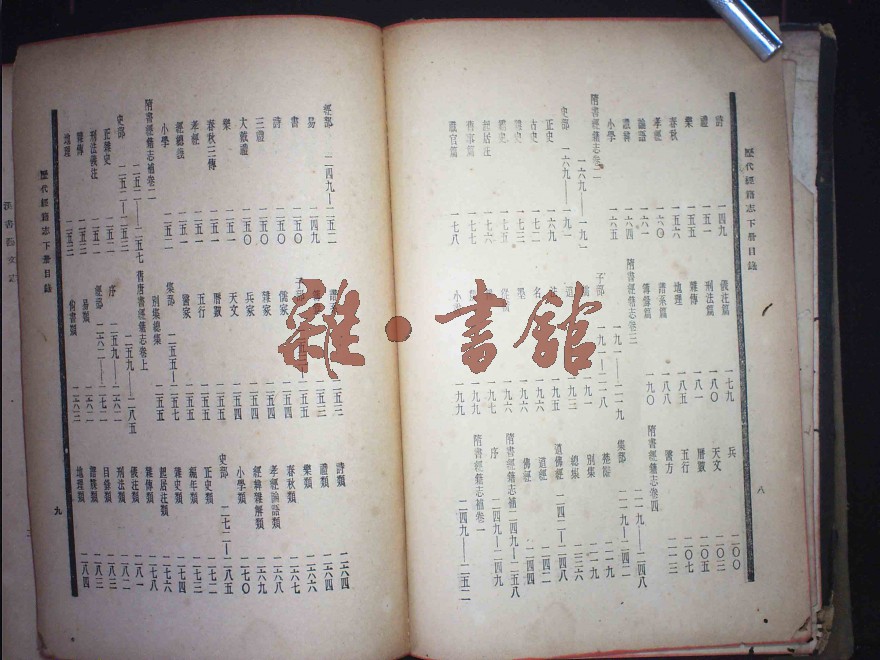 歷代經籍志下冊目錄
八
詩 一四九
禮 一五一
樂 一五五
春秋 一五六
孝經 一六〇
論語 一六一
讖緯 一六四
小學 一六五
隋書經籍志卷二 一六九—一九一
史部 一六九—一九一
正史 一六九
古史 一七二
雜史 一七三
霸史 一七五
起居注 一七六
舊事篇 一七七
職官篇 一七八
儀注篇 一七九
刑法篇 一八〇
雜傳 一八一
地理 一八五
譜系篇 一八八
簿錄篇 一九〇
隋書經籍志卷三 一九一—二一九
子部 一九一—二一八
一九一
道 一九三
一九五
名 一九六
墨 一九六
一九七
一九九
小 一九九
兵 二〇〇
天文 二〇三
曆數 二〇五
五行 二〇七
醫方 二一三
隋書經籍志卷四 二一九—二四八
集部 二一九—二四二
楚辭 二一九
別集 二一九
總集 二三六
道佛經 二四二—二四八
道經 二四二
佛經 二四四
隋書經籍志補 二四九—二五八
序 二四九—二四九
隋書經籍志補卷一 二四九—二五二
經部 二四九—二五二
易 二四九
書 二五〇
詩 二五〇
三禮 二五〇
大戴禮 二五〇
樂 二五一
春秋三傳 二五一
孝經 二五一
經總義 二五一
小學 二五二
隋書經籍志補卷二 二五二—二五七
史部 二五二—二五三
正雜史 二五二
刑法儀注 二五二
雜傳 二五三
地理 二五三
二五三
二五三
子部
儒家 二五四
雜家 二五四
兵家 二五四
天文 二五四
曆數 二五五
五行 二五五
醫家 二五五
集部 二五五—二五七
別集總集 二五五
舊唐書經籍志卷上 二五九—二八五
序 二五九—二六一
經部 二六二—二七一
易類 二六二
尚書類 二六三
詩類 二六四
禮類 二六四
樂類 二六六
春秋類 二六七
孝經論語類 二六八
經緯雜解類 二六九
小學類 二七〇
史部 二七二—二八五
正史類 二七二
編年類 二七三
雜史類 二七四
起居注類 二七六
雜傳類 二七八
儀注類 二八一
刑法類 二八二
目錄類 二八三
譜牒類 二八三
地理類 二八四
歷代經籍志下冊目錄
九
雜·書館